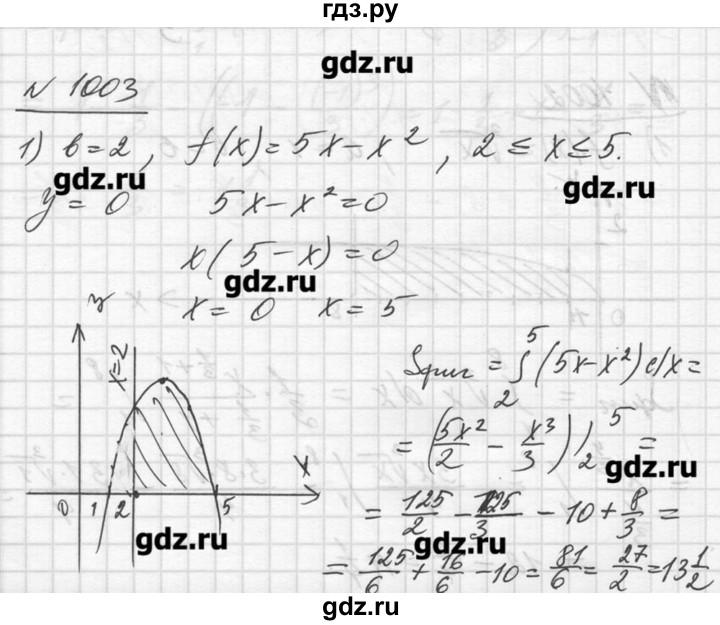 гдз.ру
gdz.ru
N 1003
1) b = 2, f(x) = 5x - x², 2 ≤ x ≤ 5.
gdz.ru gdz.ru
y = 0 5x - x² = 0
x(5 - x) = 0
gdz.ru
x = 0 x = 5
y
x=2
x
0 1 2 5
gdz.ru
Sфиг = ∫₂⁵ (5x - x²) dx =
= (5x²/2 - x³/3) |₂⁵ =
gdz.ru
= 125/2 - 125/3 - 10 + 8/3 =
gdz.ru
= 125/6 + 16/6 - 10 = 81/6 = 27/2 = 13 1/2
gdz.ru